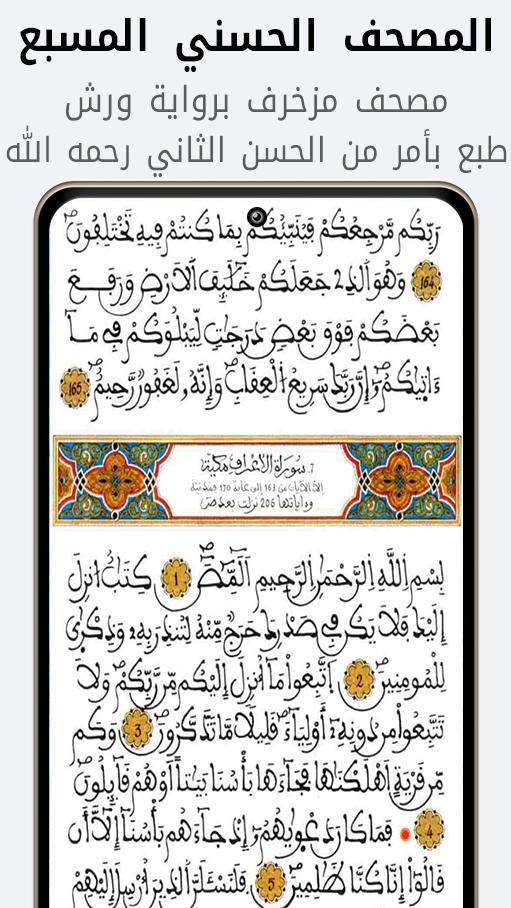 المصحف الحسني المسبع
مصحف مزخرف برواية ورش
طبع بأمر من الحسن الثاني رحمه الله
رَبِّكُم مَّرْجِعُكُمْ فَيُنَبِّئُكُم بِمَا كُنتُمْ فِيهِ تَخْتَلِفُونَ
164 وَهُوَ اَلذِے جَعَلَكُمْ خَلَٰٓئِفَ اَلَارْضِ وَرَفَعَ
بَعْضَكُمْ فَوْقَ بَعْضٍ دَرَجَٰتٍ لِّيَبْلُوَكُمْ فِے مَآ
ءَاتٜيٰكُمُۥٓ إِنَّ رَبَّكَ سَرِيعُ اُلْعِقَابِ وَإِنَّهُۥ لَغَفُورٌ رَّحِيمٌ 165
7. سُورَةُ الاَعْرَافِ مَكِّيَّة
الا الآيات من 163 إلى غاية 170 فمدنية
وءاياتها 206 نزلت بعد ص
بِسْمِ اِللَّهِ اِلرَّحْمَٰنِ اِلرَّحِيمِ أَلَٓمِّٓصَٓ 1 كِتَٰبٌ اُنزِلَ
إِلَيْكَ فَلَا يَكُن فِے صَدْرِكَ حَرَجٌ مِّنْهُ لِتُنذِرَ بِهِۦ وَذِكْر۪يٰ
لِلْمُومِنِينَ 2 اَ۪تَّبِعُواْ مَآ أُنزِلَ إِلَيْكُم مِّن رَّبِّكُمْ وَلَا
تَتَّبِعُواْ مِن دُونِهِۦٓ أَوْلِيَآءَ قَلِيلًا مَّا تَذَّكَّرُونَ 3 وَكَم
مِّن قَرْيَةٍ اَهْلَكْنَٰهَا فَجَآءَهَا بَأْسُنَا بَيَٰتًا اَوْ هُمْ قَآئِلُونَ
4 فَمَا كَانَ دَعْو۪يٰهُمُۥٓ إِذْ جَآءَهُم بَأْسُنَآ إِلَّآ أَن
قَالُوٓاْ إِنَّا كُنَّا ظَٰلِمِينَ 5 فَلَنَسْـَٔلَنَّ اَلذِينَ أُرْسِلَ إِلَيْهِمْ